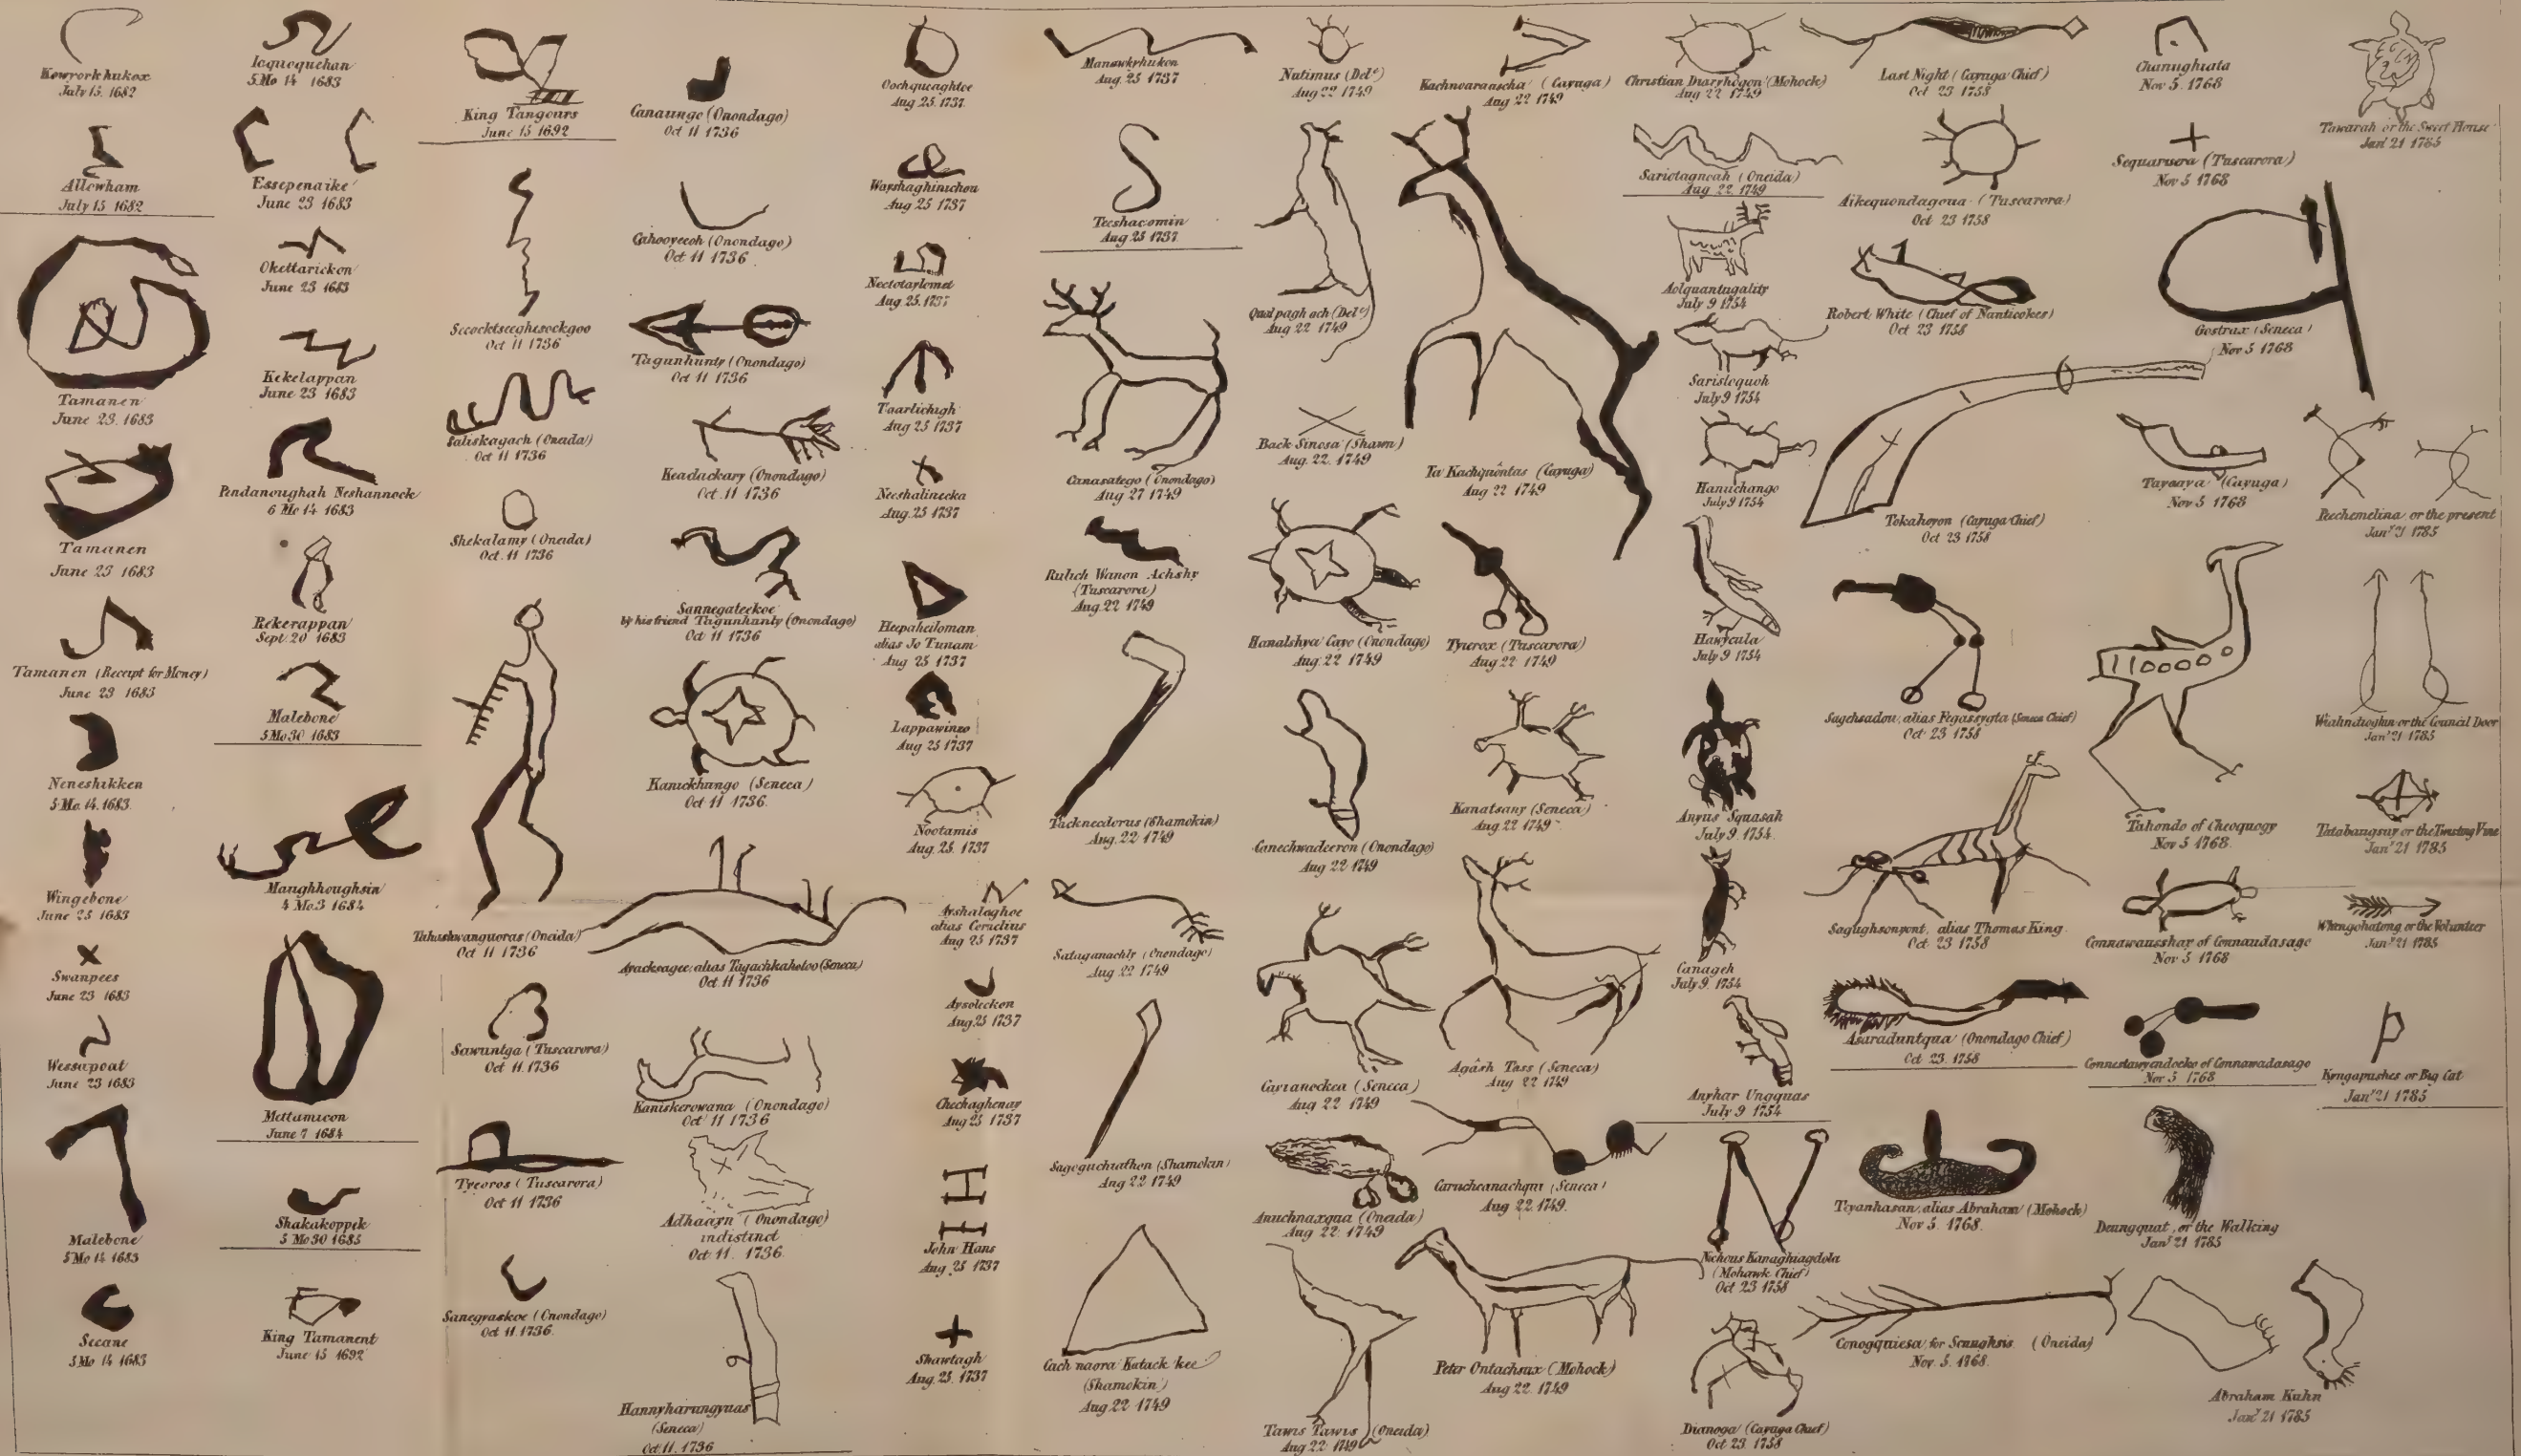 Kowyorkhukox
July 15. 1682
Allowham
July 15 1682
Tamanen
June 23. 1683
Tamanen
June 23 1683
Tamanen (Receipt for Money)
June 23 1683
Neneshikken
5 Mo. 14. 1683
Wingebone
June 25 1683
Swanpees
June 23 1683
Wessapoat
June 23 1683
Malebone
5 Mo 14 1683
Secane
5 Mo 14 1683
Icquoquehan
5 Mo 14 1683
Essepenaike
June 23 1683
Okettarickon
June 23 1683
Kekelappan
June 23 1683
Pendanoughah Neshannock
6 Mo 14 1683
Kekerappan
Sept 20 1683
Malebone
5 Mo 30 1683
Maughhoughsin
4 Mo 3 1684
Mettamicon
June 7 1684
Shakakoppek
5 Mo 30 1685
King Tamanent
June 15 1692
King Tangours
June 15 1692
Secocktseeghesockgoo
Oct 11 1736
Saliskagach (Oneida)
Oct 11 1736
Shekalamy (Oneida)
Oct. 11 1736
Tahashwanguoras (Oneida)
Oct 11 1736
Sawuntga (Tuscarora)
Oct 11. 1736
Tyeoros (Tuscarora)
Oct 11 1736
Sanegyaskoe (Onondago)
Oct 11. 1736
Canaungo (Onondago)
Oct 11 1736
Cahooyeeoh (Onondago)
Oct 11 1736
Tagunhunty (Onondago)
Oct 11 1736
Keadackary (Onondago)
Oct. 11 1736
Sannegateekoe
by his friend Tagunhunty (Onondago)
Oct 11 1736
Kanickhungo (Seneca)
Oct 11 1736.
Ayacksagee alias Tagachkaholoo (Seneca)
Oct. 11 1736
Kaniskerowana (Onondago)
Oct 11 1736
Adhaaryn (Onondago)
indistinct
Oct 11. 1736
Hannyharungyuas
(Seneca)
Oct. 11. 1736
Oochqueaghtoe
Aug. 25. 1737.
Wayshaghinichon
Aug 25 1737
Nectotaylemet
Aug. 25. 1737
Taarlichigh
Aug 25 1737
Neeshalinecka
Aug. 25 1737
Heepaheiloman
alias Jo Tunam
Aug 25 1737
Lappawinzo
Aug 25 1737
Nootamis
Aug. 25. 1737
Ayshalaghoe
alias Cornelius
Aug 25 1737
Aysoleckon
Aug 25 1737
Chechaghenay
Aug 25 1737
John Hans
Aug. 25 1737
Shawtagh
Aug. 25. 1737
Manawkyhukon
Aug. 25 1737
Teeshacomin
Aug 25 1737
Canasatego (Onondago)
Aug 27 1749
Rulich Wanon Achshy
(Tuscarora)
Aug. 22 1749
Tacknecdorus (Shamokin)
Aug. 22 1749
Sataganachly (Onondago)
Aug 22 1749
Sagoguchiathon (Shamokin)
Aug 22 1749
Cach naora Katack kee
(Shamokin)
Aug. 22 1749
Nutimus (Del.)
Aug 22 1749
Qualpagh ach (Del.)
Aug 22 1749
Back Sinosa (Shawn)
Aug. 22. 1749
Hanalshya Cayo (Onondago)
Aug. 22 1749
Canechwadeeron (Onondago)
Aug 22 1749
Cayianockea (Seneca)
Aug 22 1749
Anuchnaxqua (Oneida)
Aug 22. 1749
Tawis Tawis (Oneida)
Aug 22 1749
Kachnoaranscha (Cayuga)
Aug 22 1749
Ta Kachquontas (Cayuga)
Aug 22 1749
Tyierox (Tuscarora)
Aug 22 1749
Kanatsany (Seneca)
Aug 22 1749
Agash Tass (Seneca)
Aug 22 1749
Carucheanachqui (Seneca)
Aug 22. 1749.
Peter Ontachsux (Mohock)
Aug 22. 1749
Christian Diaryhogon (Mohock)
Aug 22 1749
Sariotagneah (Oneida)
Aug 22. 1749
Aolquantugality
July 9 1754
Saristoquoh
July 9 1754
Hanuchango
July 9 1754
Hawycula
July 9 1754
Anyus Squasah
July 9. 1754.
Canageh
July 9. 1754
Anyhar Ungquas
July 9 1754
Nichous Kanaghiagdola
(Mohawk Chief)
Oct 23 1758
Dianoga (Cayuga Chief)
Oct 23. 1758
Last Night (Cayuga Chief)
Oct 23 1758
Aikequondagoua (Tuscarora)
Oct 23 1758
Robert White (Chief of Nanticokes)
Oct 23 1758
Tokahoyon (Cayuga Chief)
Oct 23 1758
Sagehsadou, alias Fegassygta (Seneca Chief)
Oct 23 1758
Sagughsonyont, alias Thomas King
Oct 23 1758
Asaraduntqua (Onondago Chief)
Oct 23. 1758
Teyanhasan, alias Abraham (Mohock)
Nov 5. 1768.
Conogquiesa for Scnughsis (Oneida)
Nov. 5. 1768.
Chanughiata
Nov 5. 1768
Sequarusera (Tuscarora)
Nov 5 1768
Gostrax (Seneca)
Nov 5 1768
Tayaaya (Cayuga)
Nov 5 1768
Tahondo of Cheoquogy
Nov 5 1768.
Connawausshar of Connaudasago
Nov 5 1768
Connestawyandocko of Connawadasago
Nov 5 1768
Deungquat, or the Walking
Jan' 21 1785
Tawarah or the Sweet House
Jan' 21 1785
Peechemelina or the present
Jan' 21 1785
or the Council Door
Jan' 21 1785
Tatabangsuy or the Twisting Vine
Jan' 21 1785
Whengohatong, or the Volunteer
Jan' 21 1785
Kyngapushes or Big Cat
Jan' 21 1785
Abraham Kuhn
Jan' 21 1785